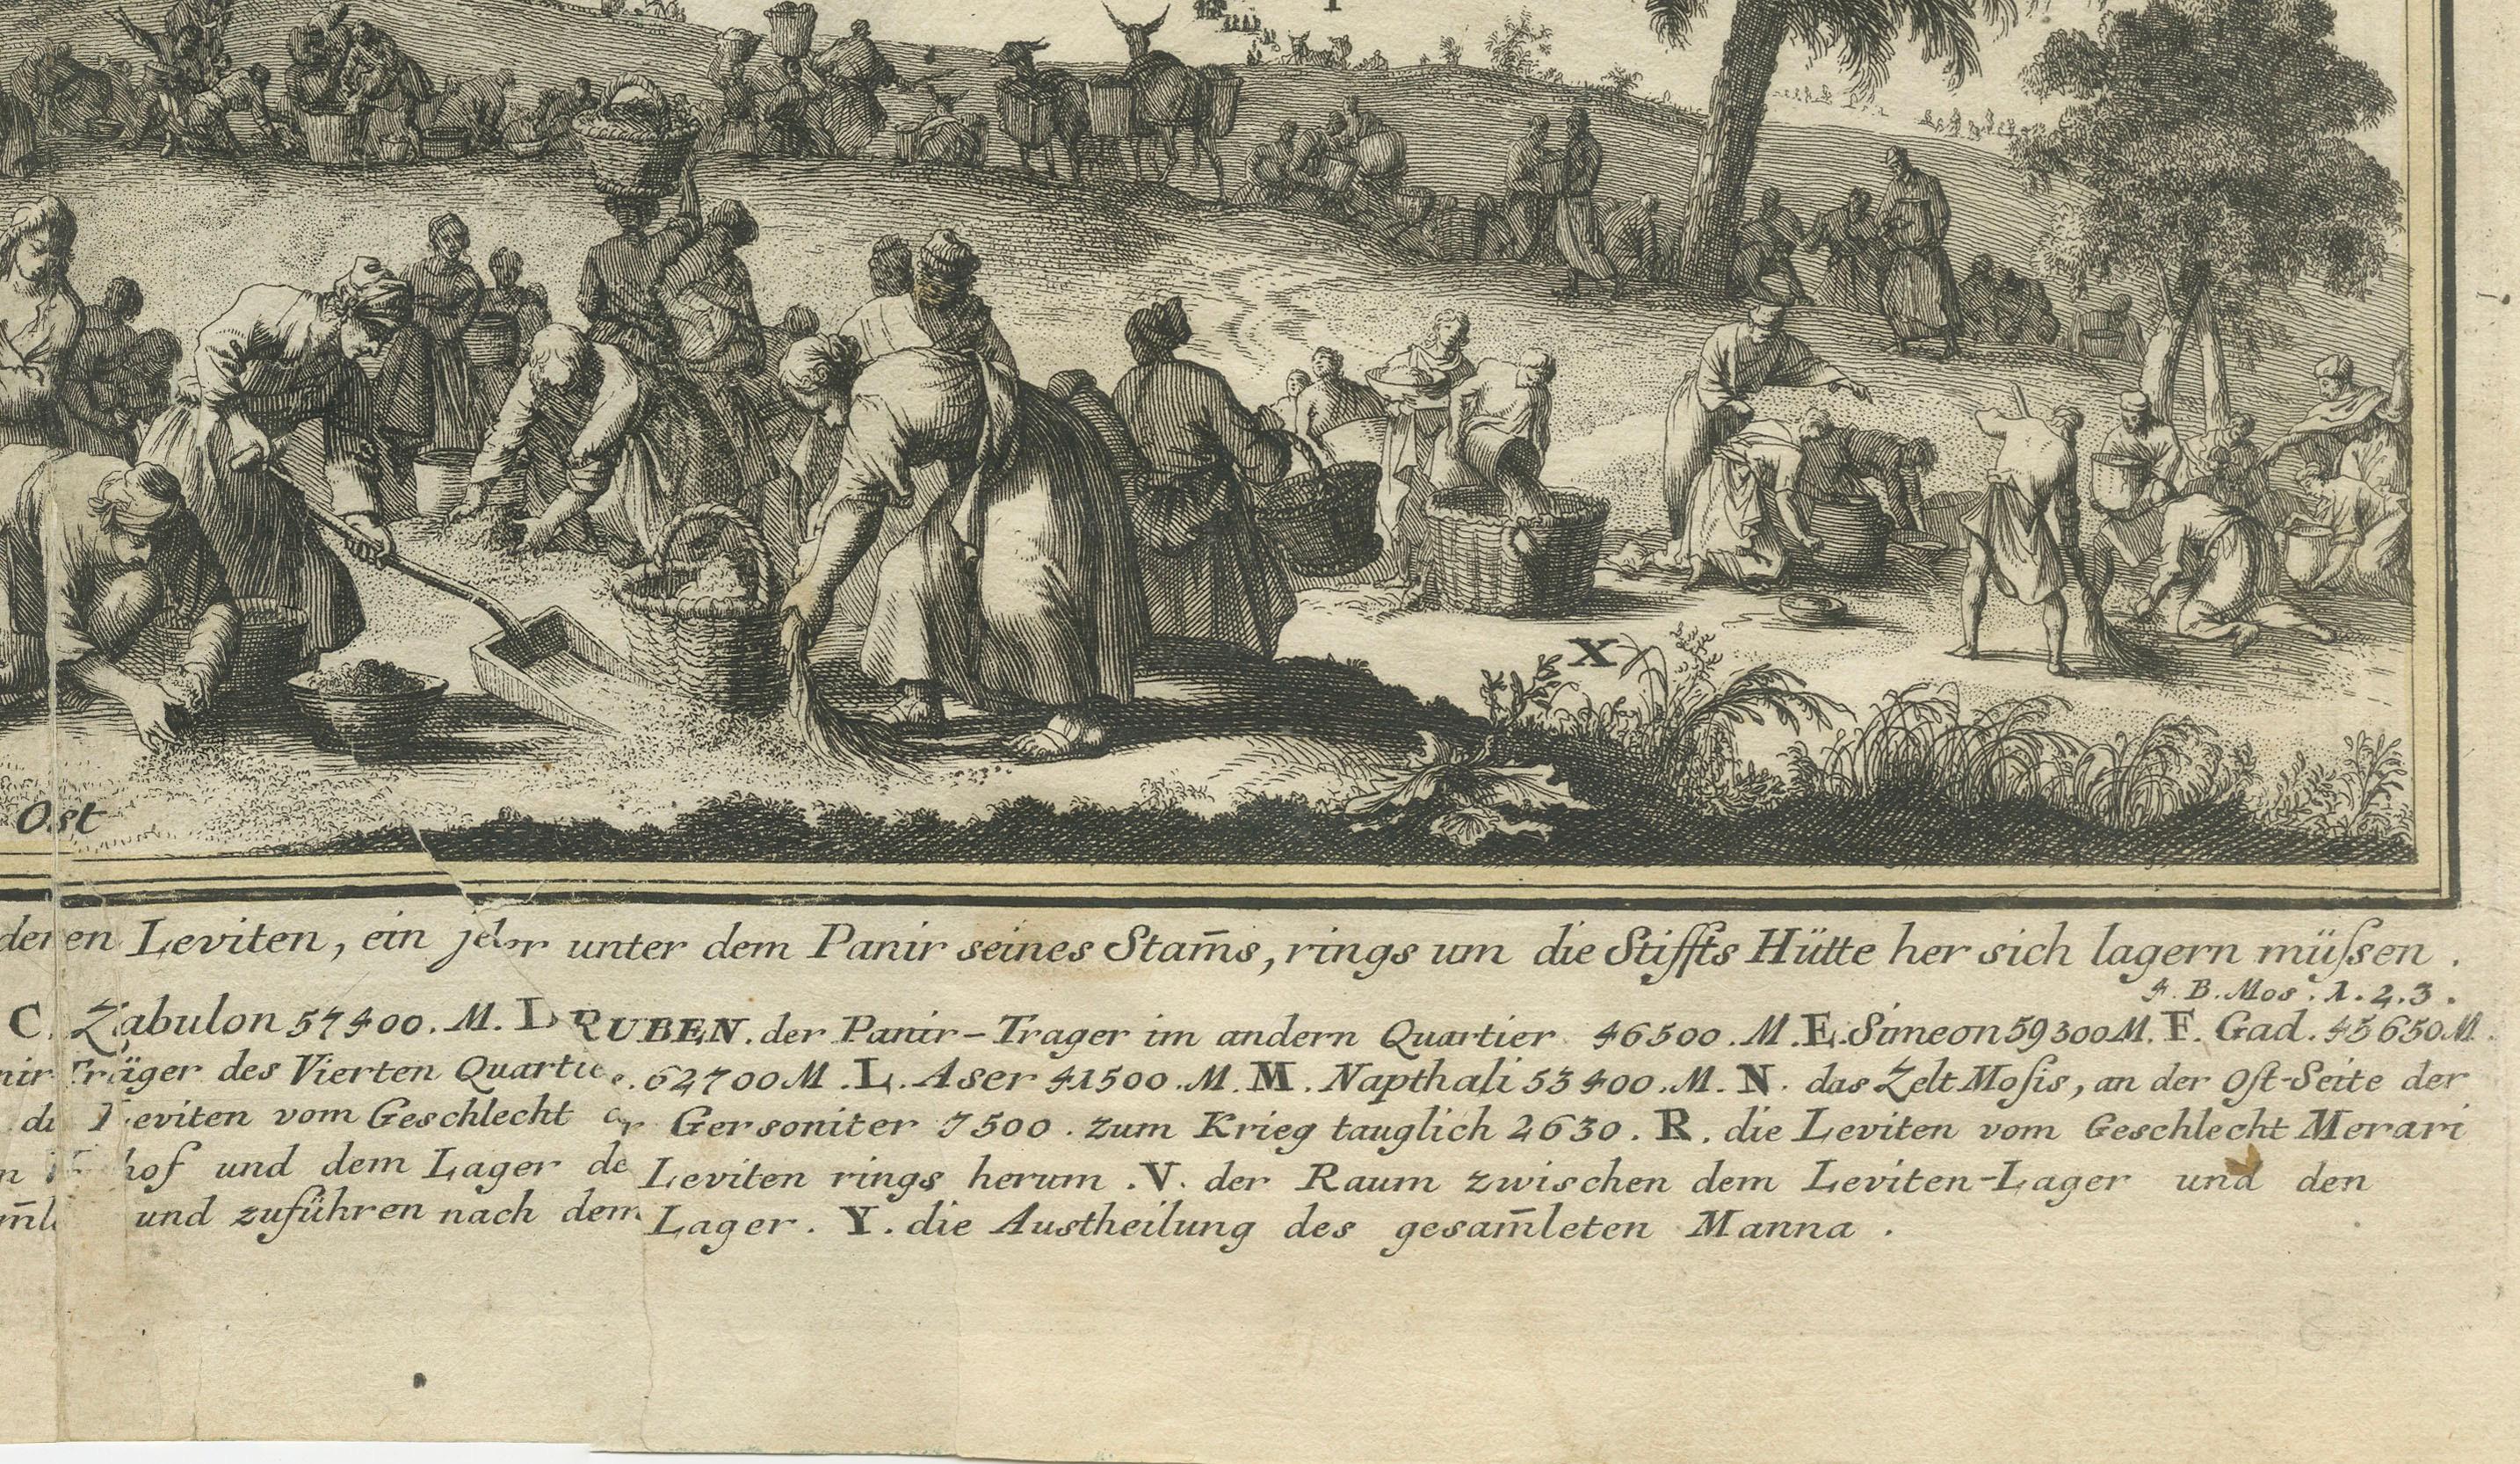 X
Ost
denen Leviten, ein jeder unter dem Panir seines Stam̄s, rings um die Stiffts Hütte her sich lagern müſsen.
4. B. Mos. 1. 2. 3.
C. Zabulon 57400. M. D RUBEN. der Panir-Trager im andern Quartier 46500. M. E. Simeon 59300 M. F. Gad. 45650 M.
Träger des Vierten 62700 M. L. Aser 41500. M. M. Napthali 53400. M. N. das Zelt Moſis, an der Oſt-Seite der
Leviten vom Geschlecht der Gersoniter 7500. zum Krieg tauglich 2630. R. die Leviten vom Geschlecht Merari
hof und dem Lager de Leviten rings herum. V. der Raum zwischen dem Leviten-Lager und den
und zuführen nach dem Lager. Y. die Austheilung des gesam̄leten Manna.